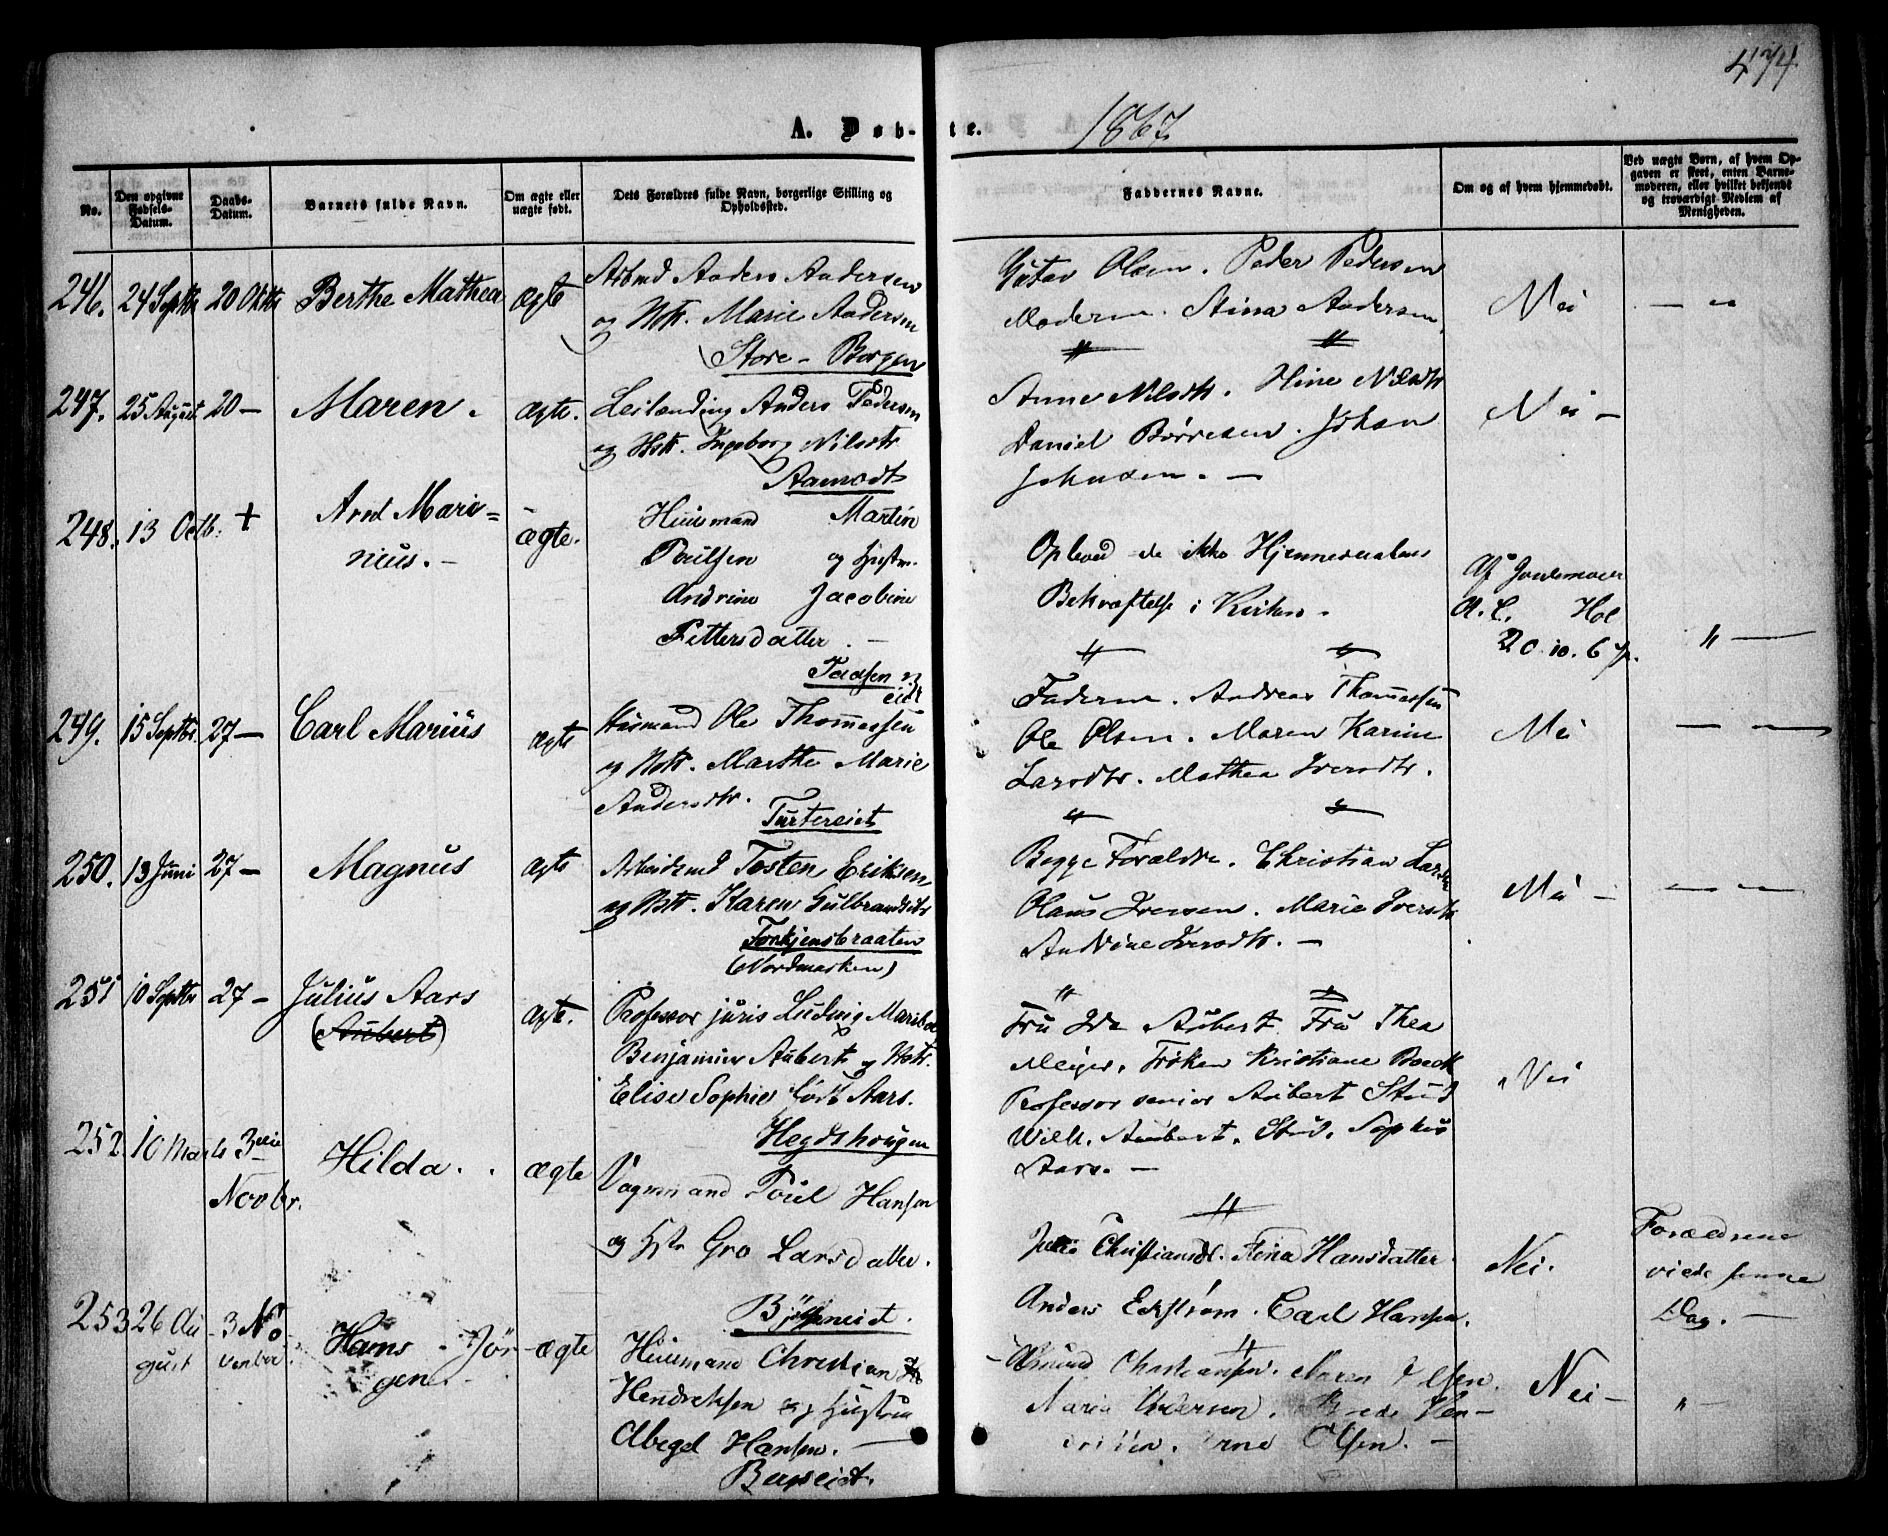 474
A. Døb-te. 1867
No.
Den opgivne Fødsels-Datum.
Daabs-Datum.
Barnets fulde Navn.
Om ægte eller uægte født.
Dets Forældres fulde Navn, borgerlige Stilling og Opholdssted.
Faddernes Navne.
Om og af hvem hjemmedøbt.
Ved uægte Børn, af hvem Opgaven er skeet, enten Barnemoderen, eller hvilket bekjendt og troværdigt Medlem af Menigheden.
246. 24 Septbr 20 Oktbr Berthe Mathea ægte
Arbmd Anders Andersen
og Hstr. Marie Andersen
Store-Borgen
Gustav Olsen. Peder Pedersen
Moderen. Stina Andersen.
Nei — "
247. 25 August 20 — Maren. ægte.
Leilænding Anders Pedersen
og Hstr. Ingeborg Nilsdtr
Aamodt
Anne Nilsdtr. Stine Nilsdtr
Daniel Børresen. Johan
Johnsen. —
Nei —
248. 13 Octb. + Arnd Mari=
nius. — ægte.
Huusmand Martin
Poulsen og Hustru
Andrine Jacobine
Pettersdatter. —
Oplevede ikke Hjemmedaabens
Bekræftelse i Kirken.
Af Jordemoder
A. C. Hol
20.10.67. " —
249. 15 Septbr. 27 — Carl Marius ægte
Husmand Ole Thomassen
og Hstr. Marthe Marie
Andersdtr.
Turtereiet
Faderen. Andreas Thomassen
Ole Olsen. Maren Karine
Larsdtr. Mathea Iversdtr.
Nei — —
250. 13 Juni 27 — Magnus ægte
Arbeidsmd Tosten Eriksen
og Hstr. Karen Gulbrandsdtr
(Nordmarken)
Begge Forældre. Christian Larsen
Olaus Iversen. Marie Iversdtr
Andrine Iversdtr. —
Nei — — —
251 10 Septbr 27 — Julius Aars
(Aubert) ægte.
Professor juris Ludvig Maribo
Benjamin Aubert og Hstr.
Elise Sophie født Aars.
Hegdehougen
Fru Ida Aubert. Fru Thea
Meijer. Frøken Kristiane Boeck
Professor senior Aubert Stud
Wilh. Aubert. Stud. Sophus
Aars. —
Nei
252. 10 Marts 3die
Novbr. Hilda. ægte
Vognmand Poul Hansen
og Hstr Gro Larsdatter.
Julie Christiansd. Stina Hansdatter
Anders Eckstrøm. Carl Hansen.
Nei.
Forældrene
viede samme
Dag. —
253 26 Au
gust 3 No
vember. Hans Jør-
gen. ægte
Huusmand Christian
Hendriksen og Hustru
Abegel Hansen. —
Asmund Christiansen. Maren Olsen.
Maria Andersen. Brede Hen-
driksen. Arne Olsen. —
Nei — " —